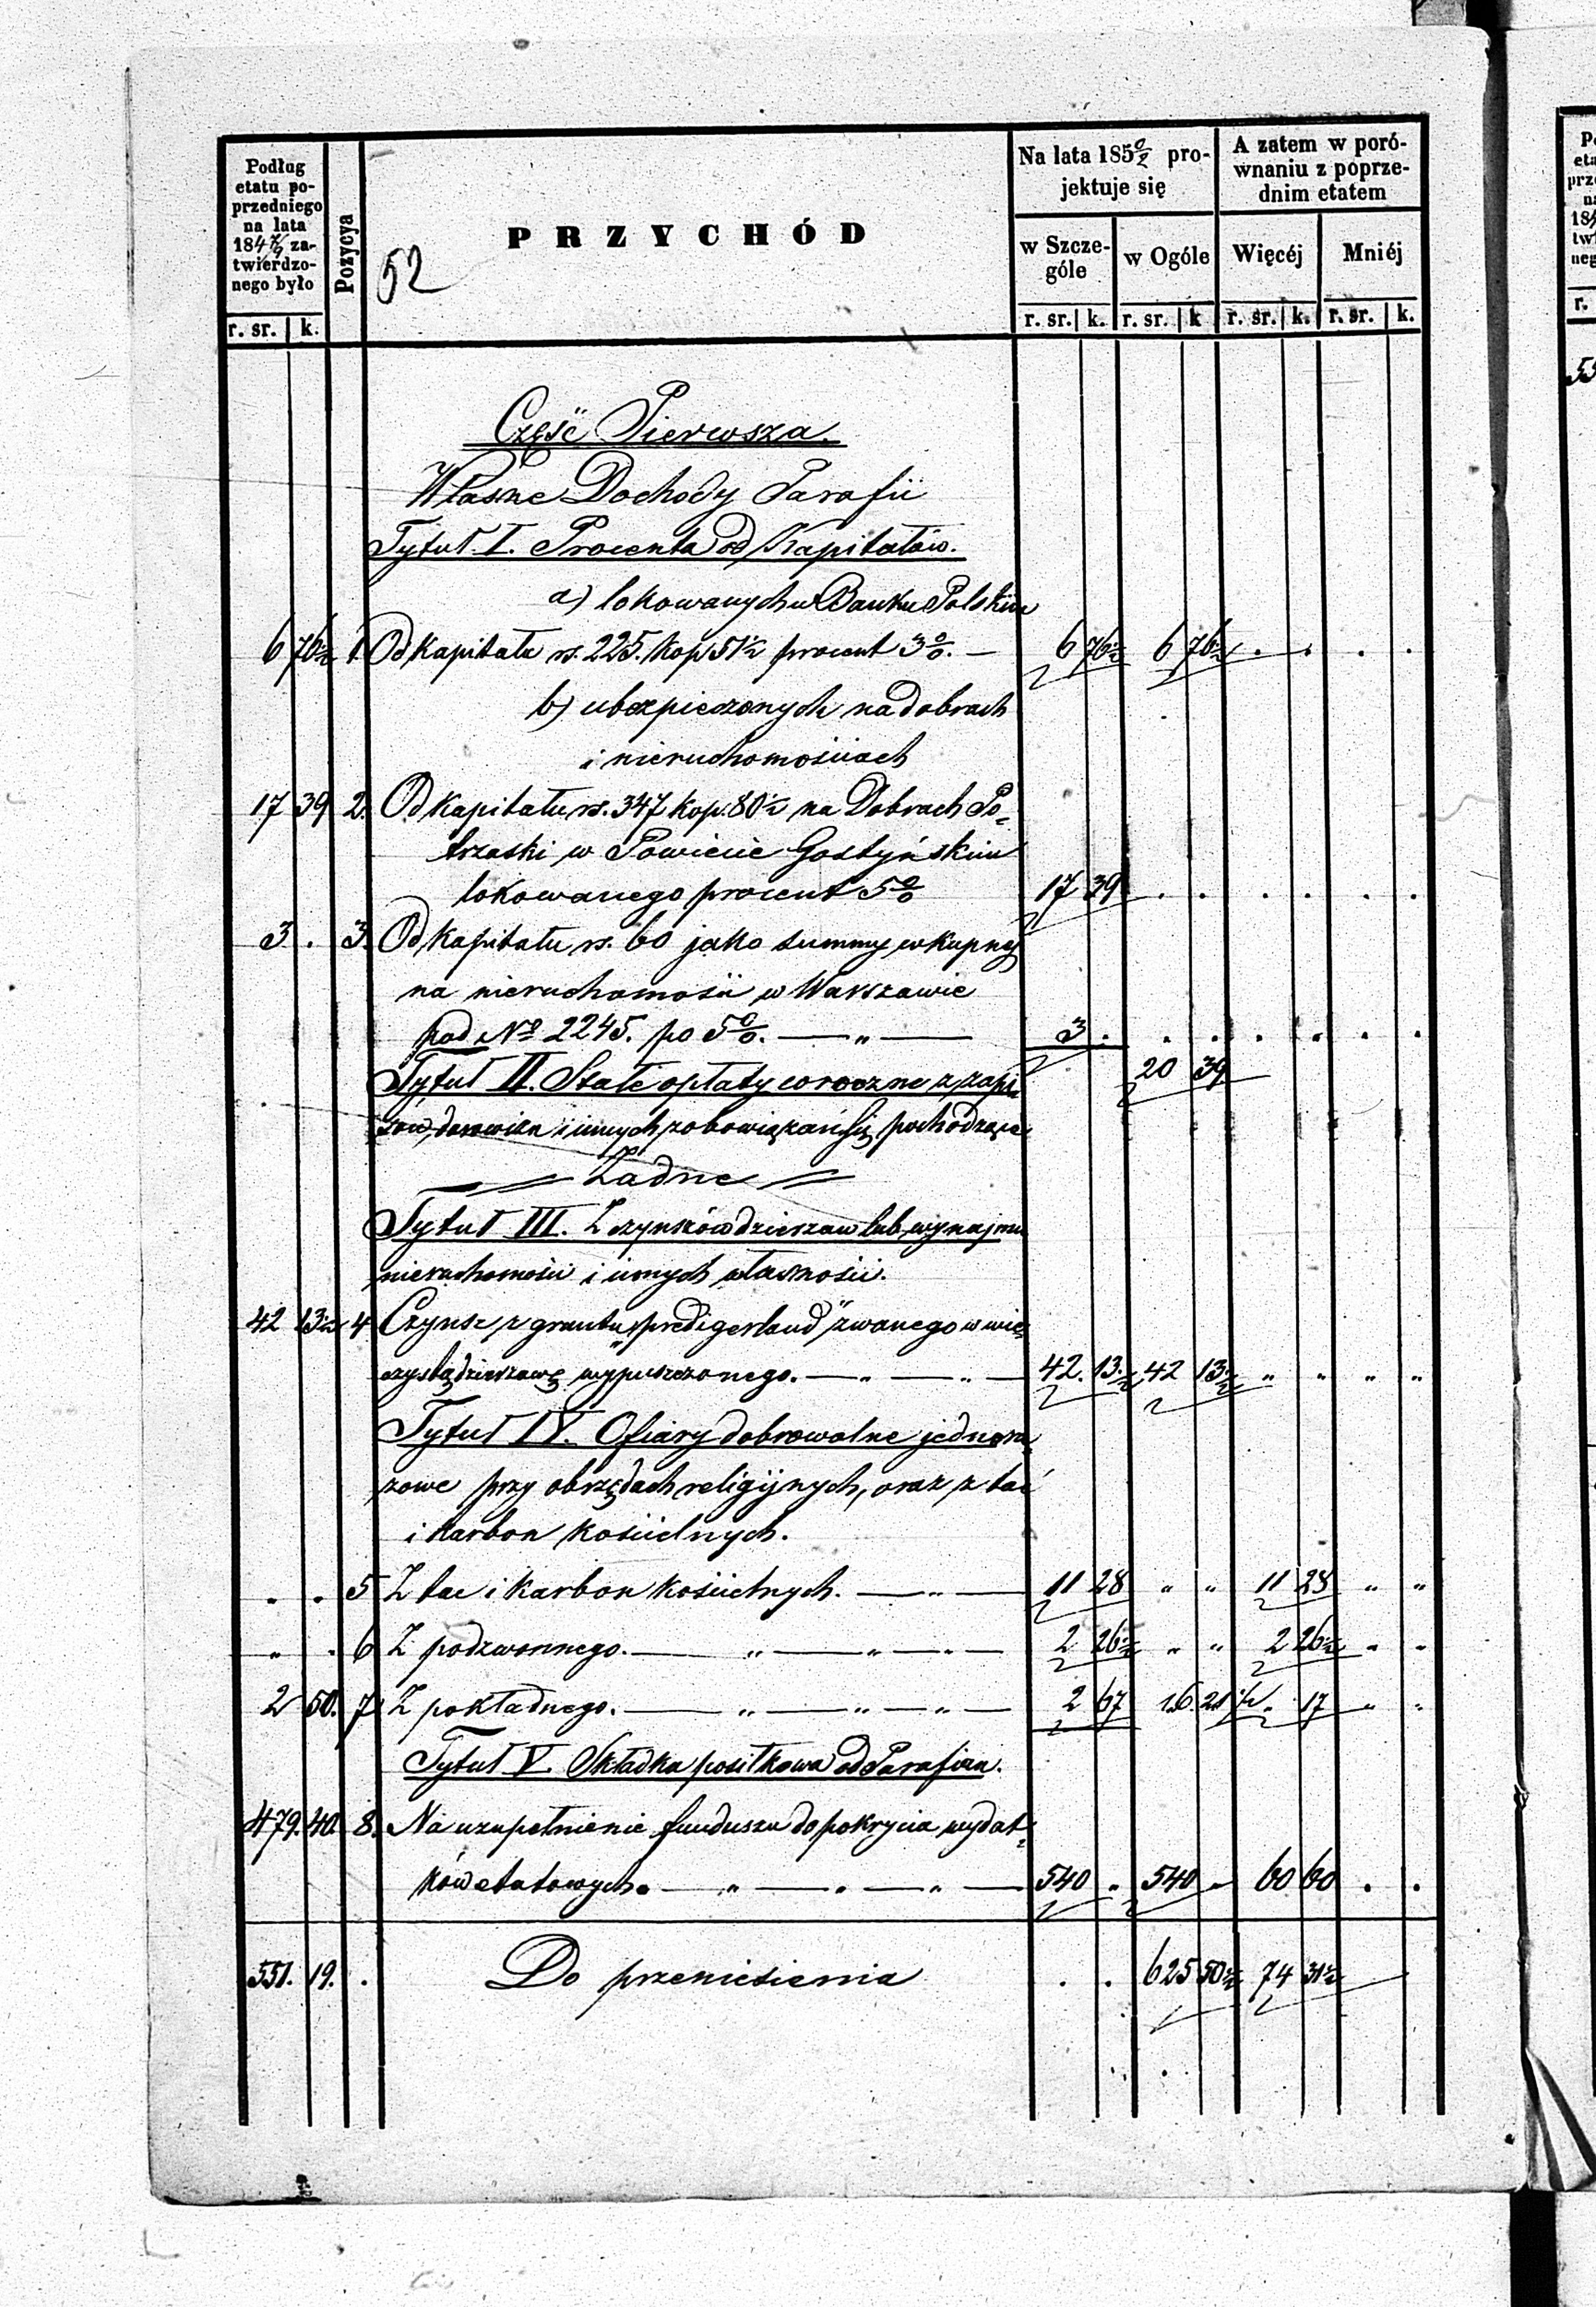 Podług etatu poprzedniego na lata 184 7/9 zatwierdzonego było
Pozycya
52
PRZYCHÓD
Na lata 185 0/2 projektuje się
A zatem w porównaniu z poprzednim etatem
w Szczególe
w Ogóle
Więcéj
Mniéj
r. sr. k. r. sr. k. r. sr. k r. sr. k. r. sr. k.
Część Pierwsza.
Własne Dochody Parafii
Tytuł I. Procenta od Kapitałów.
a) lokowanych w Banku Polskim
6 76½ 1. Od Kapitału rs. 225. kop 51½ procent 3%. — 6 76½ 6 76½ . . . .
b) ubezpieczonych na dobrach
i nieruchomościach
17 39 2. Od Kapitału rs. 347 kop. 80½ na Dobrach Po=
trzaski w Powiecie Gostyńskim
lokowanego procent 5% 17 39 . . . . . .
3 . 3. Od Kapitału rs. 60 jako summy wkupnej
na nieruchomości w Warszawie
pod No 2245. po 5%. — „ — 3 . . . . . . .
20 39
Tytuł II. Stałe opłaty coroczne z zapi=
sów, darowizn i innych zobowiązań się pochodzące
= Żadne =
Tytuł III. Z czynszów dzierżaw lub wynajmu
nieruchomości i innych własności.
42 13½ 4 Czynsz z gruntu „predigerland" zwanego w wie=
czystą dzierżawę wypuszczonego. — „ — „ — 42. 13.½ 42 13½ „ „ „ „
Tytuł IV. Ofiary dobrowolne jednora=
zowe przy obrzędach religijnych, oraz z tac
i karbon kościelnych.
. . 5 Z tac i Karbon Kościelnych. — „ — 11 28 „ „ 11 28 „ „
„ . 6 Z podzwonnego. — „ — „ — „ — 2 26½ „ „ 2 26½ „ „
2 50. 7 Z pokładnego. — „ — „ — „ — 2 67 16. 21½ . 17 „ „
Tytuł V. Składka posiłkowa od Parafian.
479. 40. 8. Na uzupełnienie funduszu do pokrycia wydat=
ków etatowych. — „ — „ — „ — 540 „ 540 „ 60 60 . .
551. 19. . Do przeniesienia . . 625 50½ 74 31½